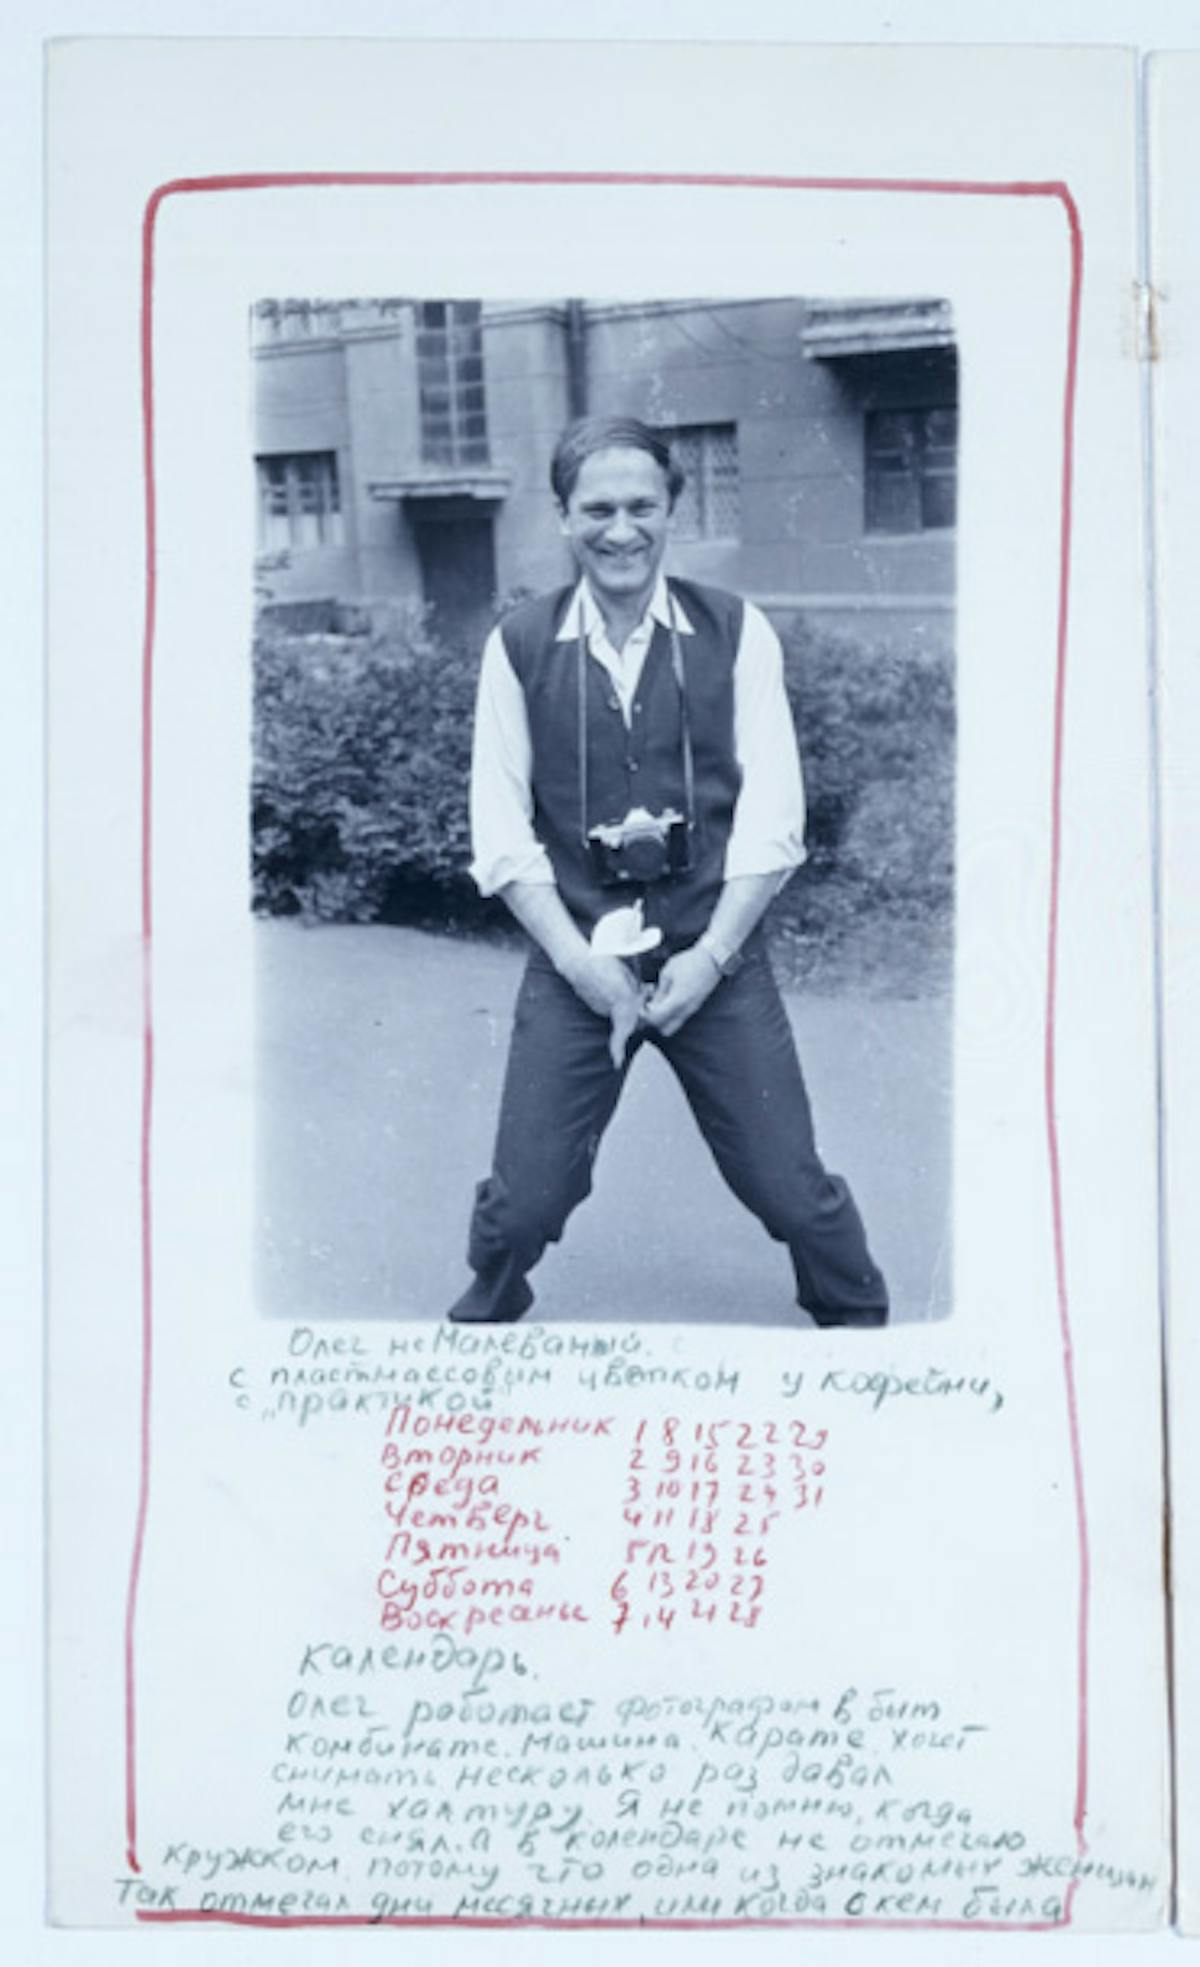 Олег неМалеванный.
с пластмассовым цветком у кофейни,
с „практикой"
Понедельник 1 8 15 22 29
Вторник 2 9 16 23 30
Среда 3 10 17 24 31
Четверг 4 11 18 25
Пятница 5 12 19 26
Суббота 6 13 20 27
Воскресанье 7 14 21 28
Календарь.
Олег работает фотографом в быт
комбинате. Машина. Карате. хочет
снимать несколько раз давал
мне халтуру. Я не помню, когда
его снял. А в календаре не отмечаю
кружком, потому что одна из знакомых женщин
Так отмечал дни месячных, или когда с кем была